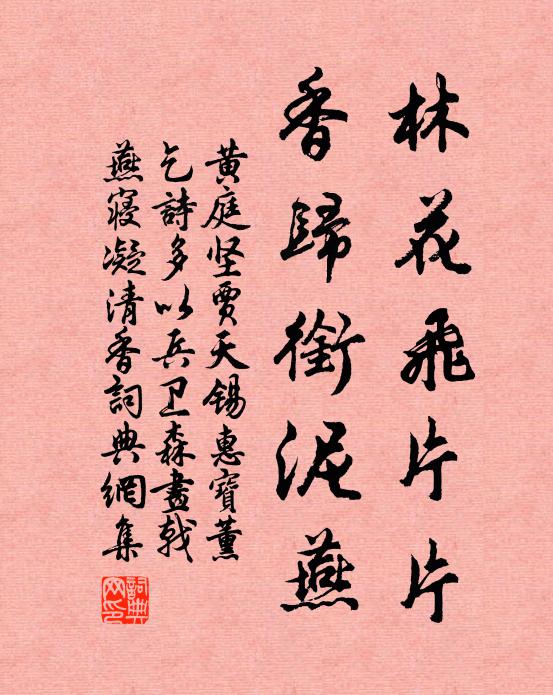 林花飛片片
香歸銜泥燕
黄庭坚賈天锡惠寶薰
乞詩多以兵卫森畫戟
燕寝凝清香詞典網集
詞典
网印